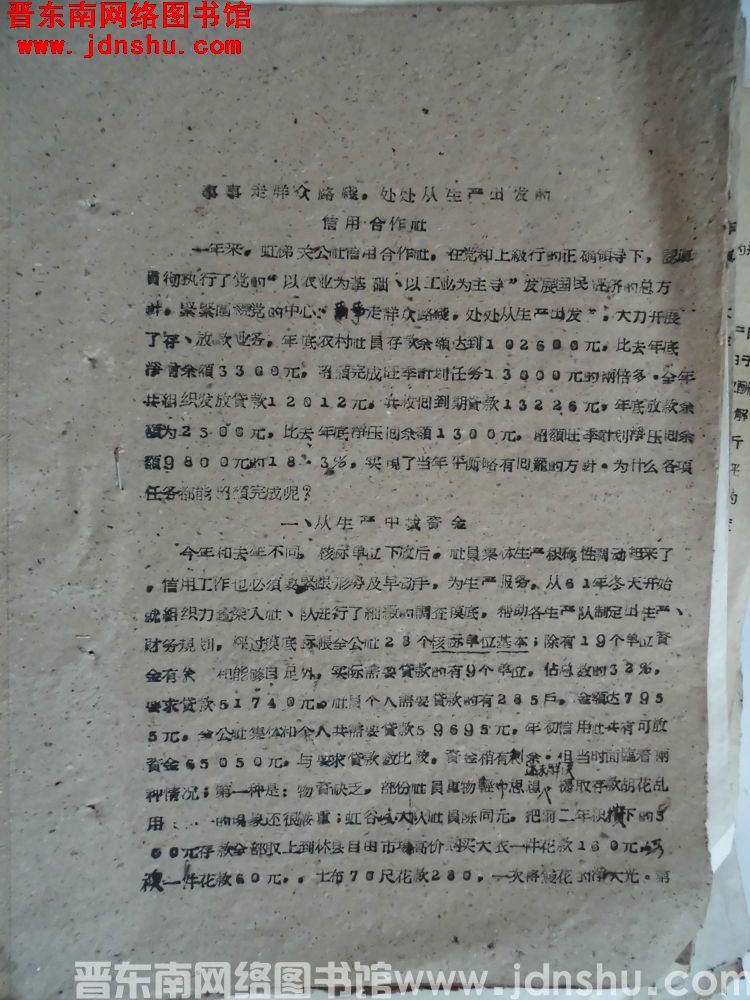 晋东南网络图书馆
www.jdnshu.com
事事走群众路綫，处处从生产出发的
信用合作社
一年来，虹梯关公社信用合作社，在党和上級行的正确領导下，認真
貫彻执行了党的“以农业为基础、以工业为主导”发展国民经济的总方
針，緊緊圍繞党的中心，事事走群众路綫，处处从生产出发”，大力开展
了存、放款业务，年底农村社員存款余額达到102600元，比去年底
淨增余額3300元，超額完成旺季計划任务13000元的兩倍多。全年
共組织发放貸款12012元，共收回到期貸款13226元，年底放款余
額为2300元，比去年底淨压回余額1300元，超額旺季計划淨压回余
額9800元的18.3%，实現了当年平衡略有回籠的方針。为什么各項
任务都能超額完成呢？
一、从生产中找資金
今年和去年不同，核标单位下放后，社員集体生产积极性調动起来了
，信用工作也必須要緊跟形势及早动手，为生产服务，从61年冬天开始
就組织力量深入社、队进行了細緻的調查摸底，帮助各生产队制定出生产、
財务規划，經过摸底 全公社28个核标单位基本；除有19个单位資
金有余 和能够自足外，实际需要貸款的有9个单位，佔总数的32%，
要求貸款51740元，社員个人需要貸款的有285戶，金額达795
5元，全公社集体和个人共需要貸款59695元，年初信用社共有可放
資金65050元，与要求貸款数比較，資金稍有剩余。但当时面臨着兩
种情况；第一种是：物資缺乏，部份社員重物輕币思想 提取存款胡花乱
用 的現象还很嚴重；虹谷 大队社員陈同元，把前二年积攢下的5
00元存款全部取上到林县自由市場高价购买大衣一件花款160元
一件花款60元，土布70尺花款280，一次将錢花的淨大光。第
晋东南网络图书馆www.jdnshu.com